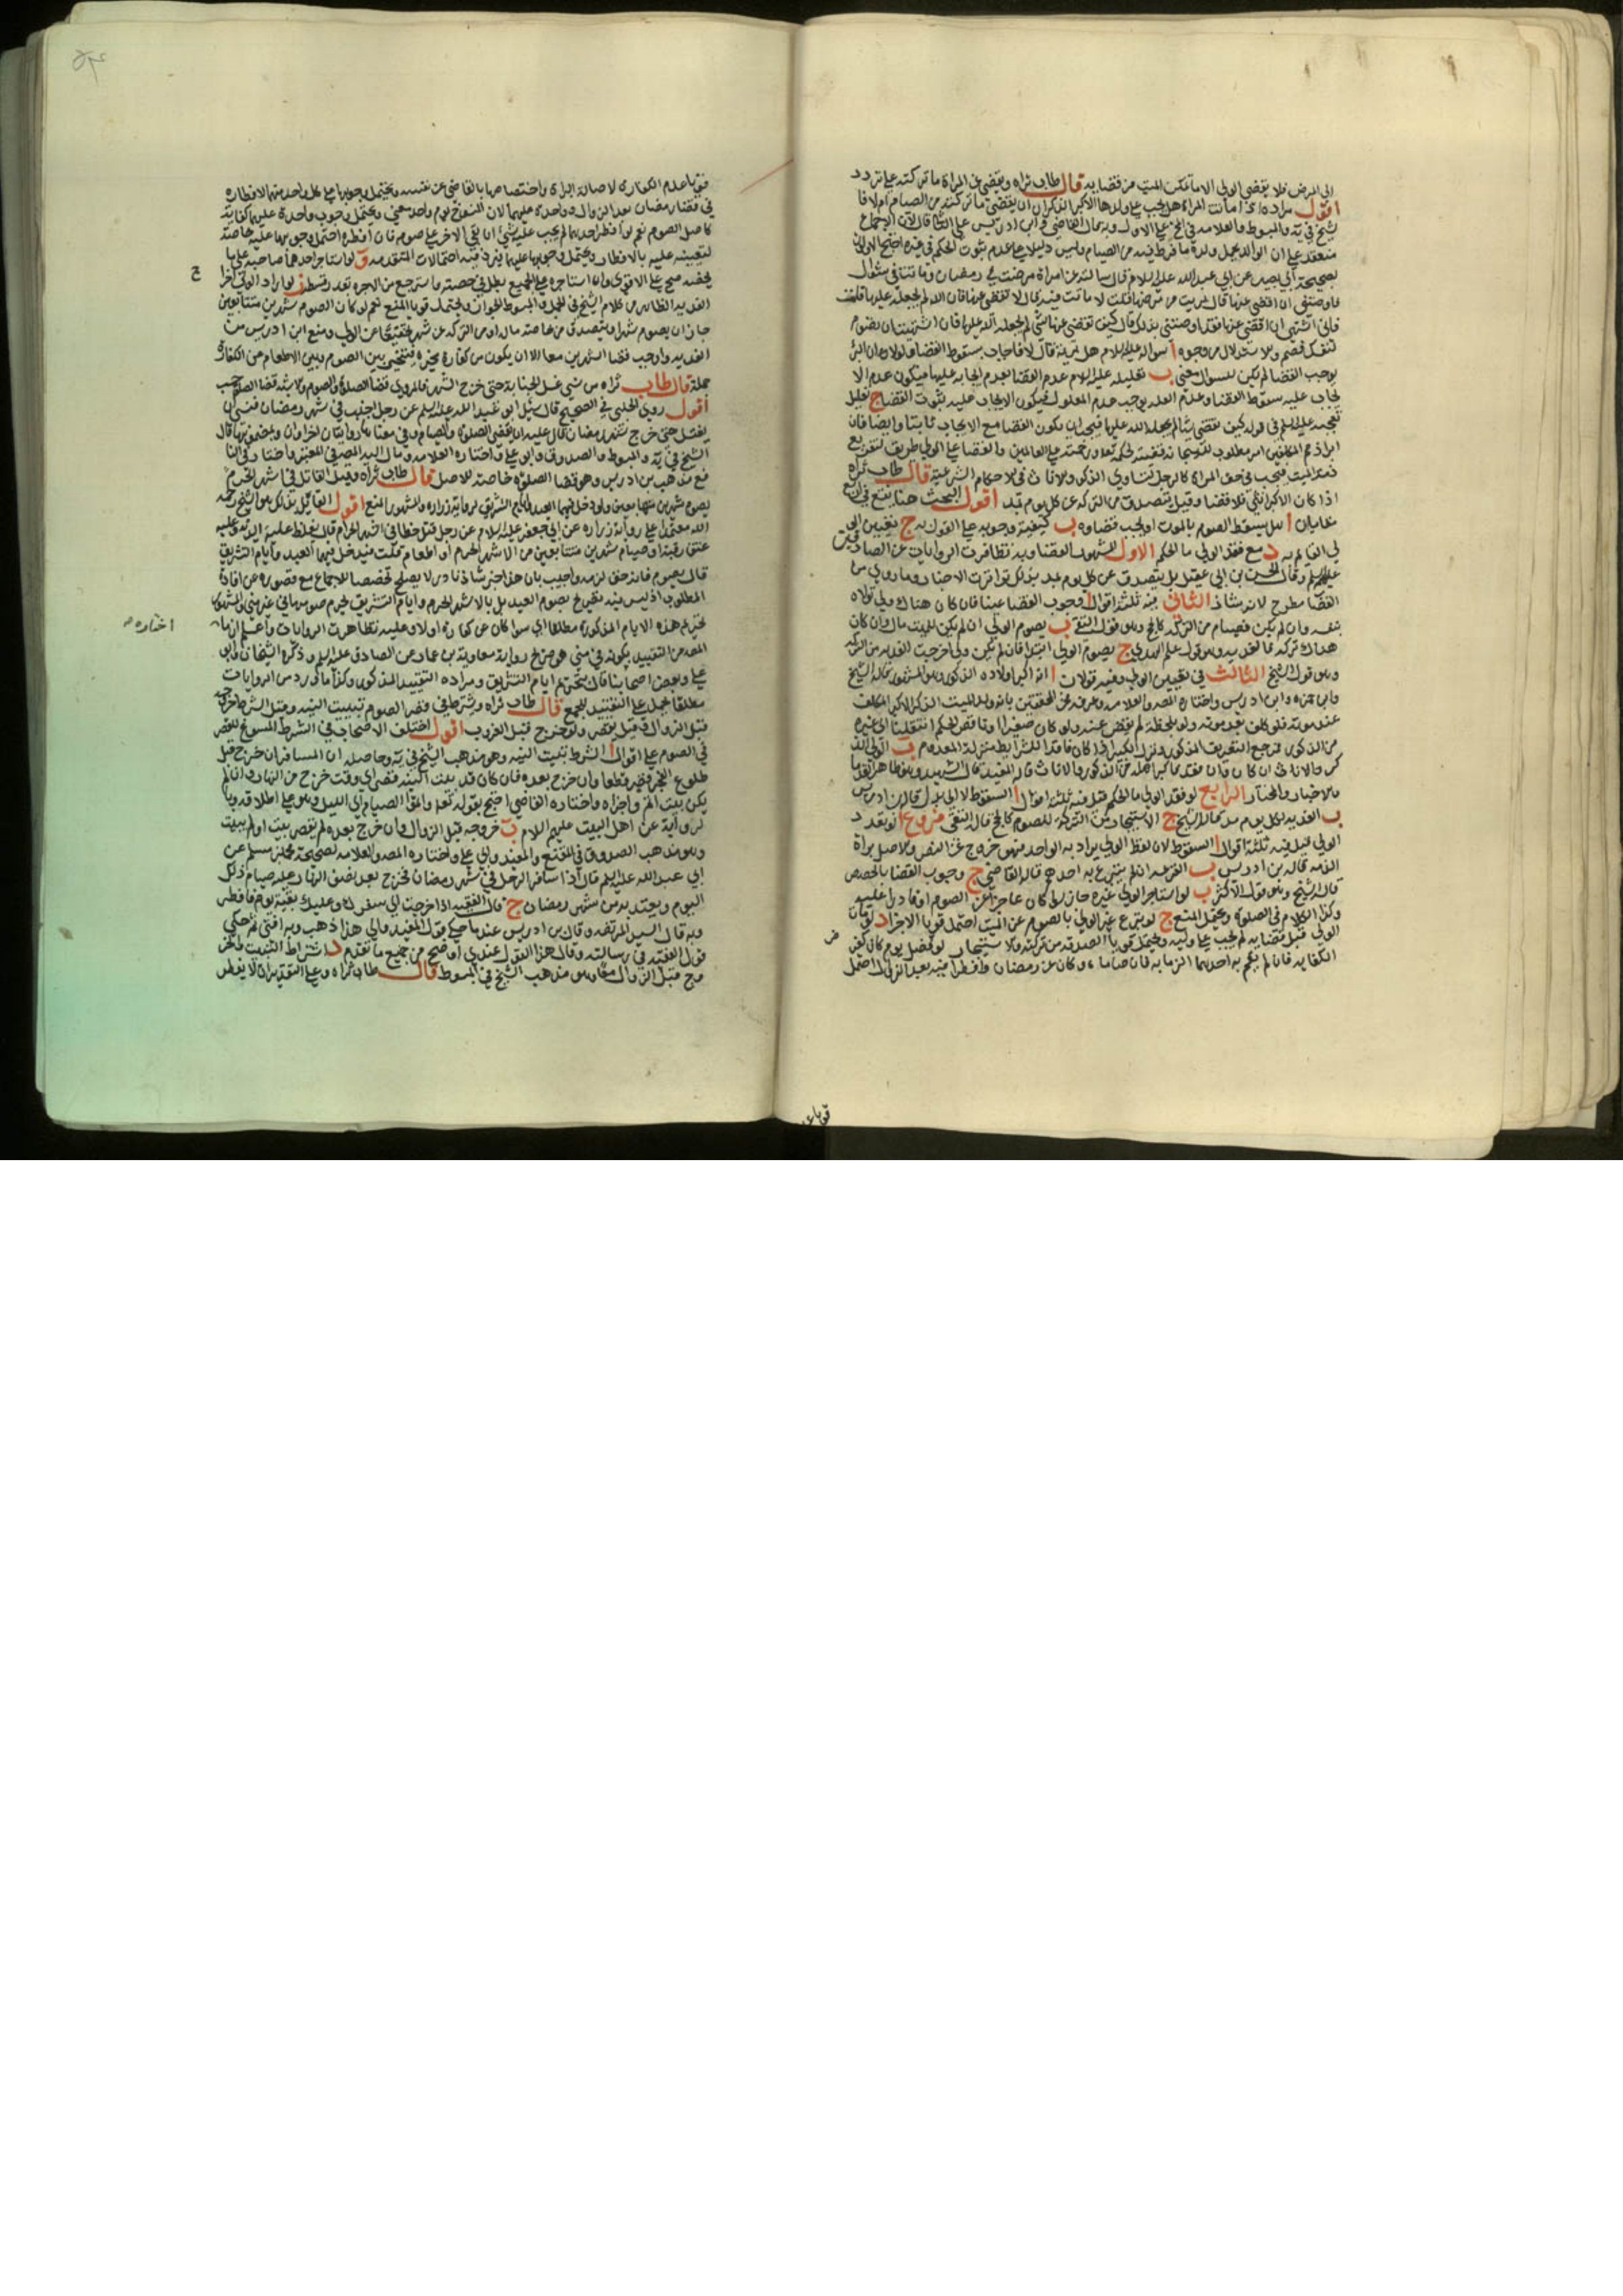 الى المرض فلا يقضى الولى الا ما تمكن الميت من قضايه قال طاب ثراه ويقضى عن المراة ما تركته على تردد
اقول مراده اذا ماتت المراة هل يجب على ولدها الاكبر الذكران ان يقضى ما تركته من الصيام ام لا قا
الشيخ في يه والمبوط والعلامه في الخ على الاول وبه قال القاضي وابن ادريس على الثاني قال لان الاجماع
منعقد على ان الوالد يحمل ولده ما فرط فيه من الصيام وليس دليلا على عدم ثبوت الحكم في غيره احتج الاولون
بصحيحة ابي بصير عن ابي عبد الله عليه السلام قال سالته عن امراة مرضت في رمضان وماتت في شوال
فاوصتنى ان اقضى عنها قال هل برئت من مرضها قلت لا ماتت فيه قال لا تقضى عنها فان الله لم يجعله عليها قلت
فانى اشتهى ان اقضى عنها وقد اوصتنى بذلك قال كيف تقضى عنها شى لم يجعله الله عليها فان اشتهيت ان تصوم
لنفسك فصم والاستدلال من وجوه ا سواله عليه السلام هل برئت قال لا فاجاب بسقوط القضا فلولا ان البرء
يوجب القضا لم يكن للسوال معنى ب تعليله عليه السلام عدم القضا بعدم ايجابه عليها فيكون عدم الا
يجاب عليه سقوط القضا وعدم العله يوجب عدم المعلول فيكون الايجاب عليه ثبوت القضا ج تعليل
تعجبه عليه السلم في قوله كيف تقضى شيا لم يجعله الله عليها فيجب ان يكون القضا مع الايجاب ثابتا وايضا فان
ذمة الميت فتجب في حق المراة كالرجل لتساوي الذكور والاناث في الاحكام الشرعية قال طاب ثراه
اذا كان الاكبر انثى فلا قضا وقيل يتصدق من التركه عن كل يوم بمد اقول البحث هنا يقع في اربع
مقامات ا هل يسقط الصوم بالموت او يجب قضاوه ب كيفية وجوبه على القول به ج تعيين الو
لي القايم به د مع فقد الولى ما الحكم الاول المشهور القضا وبه تظافرت الروايات عن الصادقين
عليهم السلم وقال الحسن بن ابي عقيل بل يتصدق عن كل يوم بمد بذلك تواترت الاخبار وما روي من
القضا مطرح لانه شاذ الثاني فيه ثلثه اقوال ا وجوب القضا عينا فان كان هناك ولي تولاه
بنفسه وان لم يكن فصيام من التركه كالحج وهو قول التقى ب يصوم الولى ان لم يكن للميت مال وان كان
هناك تركه فالفديه وهو قول علم الهدى ج يصوم الولى ابتدا فان لم يكن ولى اخرجت الفديه من التركه
وهو قول الشيخ الثالث في تعيين الولى وفيه قولان ا انه اكبر اولاده الذكور وهو المشهور قاله الشيخ
وابن حمزه وابن ادريس واختاره المصنف والعلامه وعرفه بعض المحققين بانه ولد الميت الذكر الاكبر المكلف
عند موته فلو كلف بعد موته ولو بلحظة لم يقض عنه ولو كان صغيرا او ناقص الحكم انتقلنا الى غيره
من الذكور ب الولى الذ
كر والاناث ان كان وان فقد فاكبر اهله من الذكور والاناث قاله المفيد قال الشهيد وهو ظاهر القدما
والاخبار والمختار الرابع لو فقد الولى ما الحكم قيل فيه ثلثه اقوال ا السقوط لا الى بدل قاله ابن ادريس
ب الفديه لكل يوم مد قاله الشيخ ج الاستيجار من التركه للصوم كالحج قاله التقى فروع ا لو تعدد
الولى قيل فيه ثلثة اقوال ا السقوط لان لفظ الولى يراد به الواحد فهو خروج عن النص والاصل براة
الذمه قاله ابن ادريس ب القرعه ان لم يتبرع به احدهم قاله القاضي ج وجوب القضا بالحصص
قاله الشيخ وهو قول الاكثر ب لو استاجر الولى غيره جاز ان كان عاجزا عن الصوم او قادرا عليه
وكذا الكلام في الصلوة ويحتمل المنع ج لو تبرع غير الولى بالصوم عن الميت احتمل قويا الاجزا د لو مات
الولى قبل قضايه لم يجب على وليه ويحتمل قويا الصدقه من تركته والاستيجار لو فضل يوم كان كفرض
الكفايه فان لم يقم به احدهما الزما به فان صاما وكان عن رمضان وافطرا فيه بعد الزوال احتمل
قويا عد
قويا عدم الكفارة لاصالة البراة واختصاصها بالقاضي عن نفسه ويحتمل وجوبها على كل واحد منهما لافطاره
في قضا رمضان بعد الزوال وواحدة عليهما لان المنوع يوم واحد معنى ويحتمل وجوب واحدة عليهما كفاية
كاصل الصوم نعم لو افطر احدهما لم يجب عليه شى ان بقى الاخر على صوم فان افطره احتمل وجوبها عليه خاصة
لتعينه عليه بالافطار ويحتمل وجوبها عليهما فيرد فيه احتمالات المتقدمه ق لو استاجر احدهما صاحبه على ما
يخصه صح على الاقوى وان استاجره على الجميع بطل في حصته واسترجع من الاجره بقدر قسطه ف لو اراد الولى اخرا
الفديه الظاهر من كلام الشيخ في الجمل والمبسوط الجواز ويحتمل قويا المنع نعم لو كان الصوم شهرين متتابعين
جاز ان يصوم شهرا ويتصدق من خاصة ماله او من التركه عن شهر تخفيفا عن الولى ومنع ابن ادريس من
الفديه واوجب قضا الشهرين معا الا ان يكون من كفارة مخيره فيتخير بين الصوم وبين الاطعام من الكفارة
جملة قال طاب ثراه من نسى غسل الجنابة حتى خرج الشهر فالمروى قضا الصلوة والصوم والاشبه قضا الصلوة حسب
اقول روى الحلبى في الصحيح قال سئل ابو عبد الله عليه السلم عن رجل اجنب في شهر رمضان فنسى ان
يغتسل حتى خرج شهر رمضان قال عليه ان يقضى الصلوة والصيام وفي معناها روايتان اخراوان وبمضمونها قال
الشيخ في يه والمبوط والصدوق وابو علي واختاره العلامه ومال اليه المصنف في المعتبر
فع مذهب ابن ادريس وهو قضا الصلوة خاصة للاصل قال طاب ثراه وقيل القاتل في اشهر الحرم
يصوم شهرين منها بعين وان دخل فيهما العيد وايام التشريق لرواية زراره والمشهور المنع اقول القايل بذلك هو الشيخ رحمه
الله معتمدا على رواية زراره عن ابي جعفر عليه السلام عن رجل قتل خطا في اشهر الحرام قال يغلظ عليه الديه وعليه
عتق رقبة او صيام شهرين متتابعين من الاشهر الحرم او اطعام قلت فيدخل فيهما العيد وايام التشريق
قال يصوم فانه حق لزمه واجيب بان هذا خبر شاذ نادر لا يصلح تخصصا للاجماع مع قصوره عن افادة
المطلوب اذ ليس فيه تصريح بصوم العيد بل بالاشهر الحرم وايام التشريق يحرم صومها في غير منى والمشهور
تحريم هذه الايام المذكورة مطلقا اي سوا كان عن كفارة اولا وعليه تظاهرت الروايات واعلم ان ما
اختاره
المصنف من التقييد بكونه في منى هو صريح رواية معاوية بن عمار عن الصادق عليه السلم وذكره الشيخان وابو
علي وبعض اصحابنا قال بتحريم ايام التشريق ومراده التقييد المذكور وكذا ما ورد من الروايات
مطلقا يحمل على التقييد للجمع قال طاب ثراه وشرطه في قصر الصوم تبييت النيه وقيل الشرط خروجه
قبل الزوال وقيل يقصر ولو خرج قبل الغروب اقول اختلف الاصحاب في الشرط المسوغ للقصر
في الصوم على اقوال ا الشرط تبييت النيه وهو مذهب الشيخ في يه وحاصله ان المسافر ان خرج قبل
طلوع الفجر قصر قطعا وان خرج بعده فان كان قد بيت النيه قصر اى وقت خرج من النهار وان لم
يكن بيت اتم واجزاه واختاره القاضي احتج بقوله تعالى واتموا الصيام الى الليل وهو على اطلاقه
لرواية عن اهل البيت عليهم السلام ب خروجه قبل الزوال وان خرج بعده لم يقصر بيت او لم يبيت
وهو مذهب الصدوق في المقنع والمفيد وابي علي واختاره المصنف والعلامه لصحيحة محمد بن مسلم عن
ابي عبد الله عليه السلم قال اذا سافر الرجل في شهر رمضان فخرج بعد نصف النهار عليه صيام ذلك
اليوم ويعتد به من شهر رمضان ج قال الفقيه اذا خرجت الى سفرك وعليك بقية يوم فافطر
وبه قال السيد المرتضى وقال ابن ادريس عندما حكى قول المفيد والى هذا اذهب وبه افتى ثم حكى
قول الفقيه في رسالته وقال هذا القول عندى اوضح من جميع ما تقدم د اشتراط التبييت والخر
وج قبل الزوال معا وهو مذهب الشيخ في المبسوط قال طاب ثراه وعلى التقديرين لا يفطر